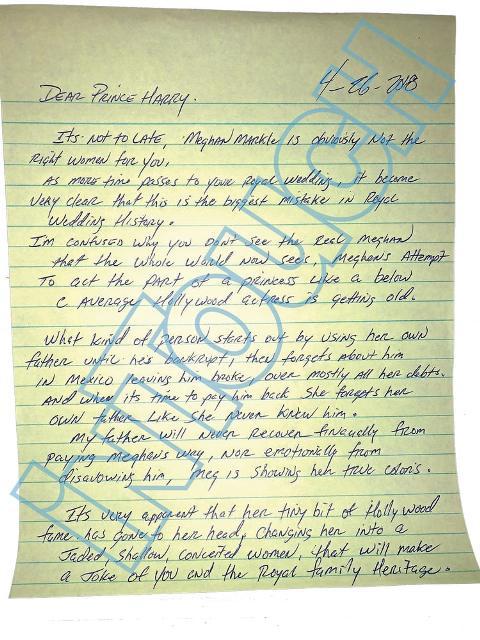 4-26-2018
DEAR PRINCE HARRY.
ITS NOT TO LATE, MEGHAN MARKLE IS obviously Not the
Right Women for you.
AS MORE time passes to your Royal Wedding, it became
very clear that this is the biggest mistake in Royal
Wedding History.
I'm confused why you Don't see the Real Meghan
that the whole World Now sees, Meghan's Attempt
To act the part of a princess like a below
C Average Hollywood Actress is getting old.
What kind of person starts out by using her own
father until he's bankrupt, then forgets about him
IN Mexico leaving him broke, over mostly all her debts.
AND when its time to pay him back She forgets her
own father like she never knew him.
My father will Never Recover financially from
paying Meghan's way, NOR emotionally from
disavowing him, Meg is showing her true colors.
Its very apparent that her tiny bit of Hollywood
fame has gone to her head, Changing her into a
Jaded, Shallow, conceited women, that will make
a Joke of you and the Royal family Heritage.
INTOUCH